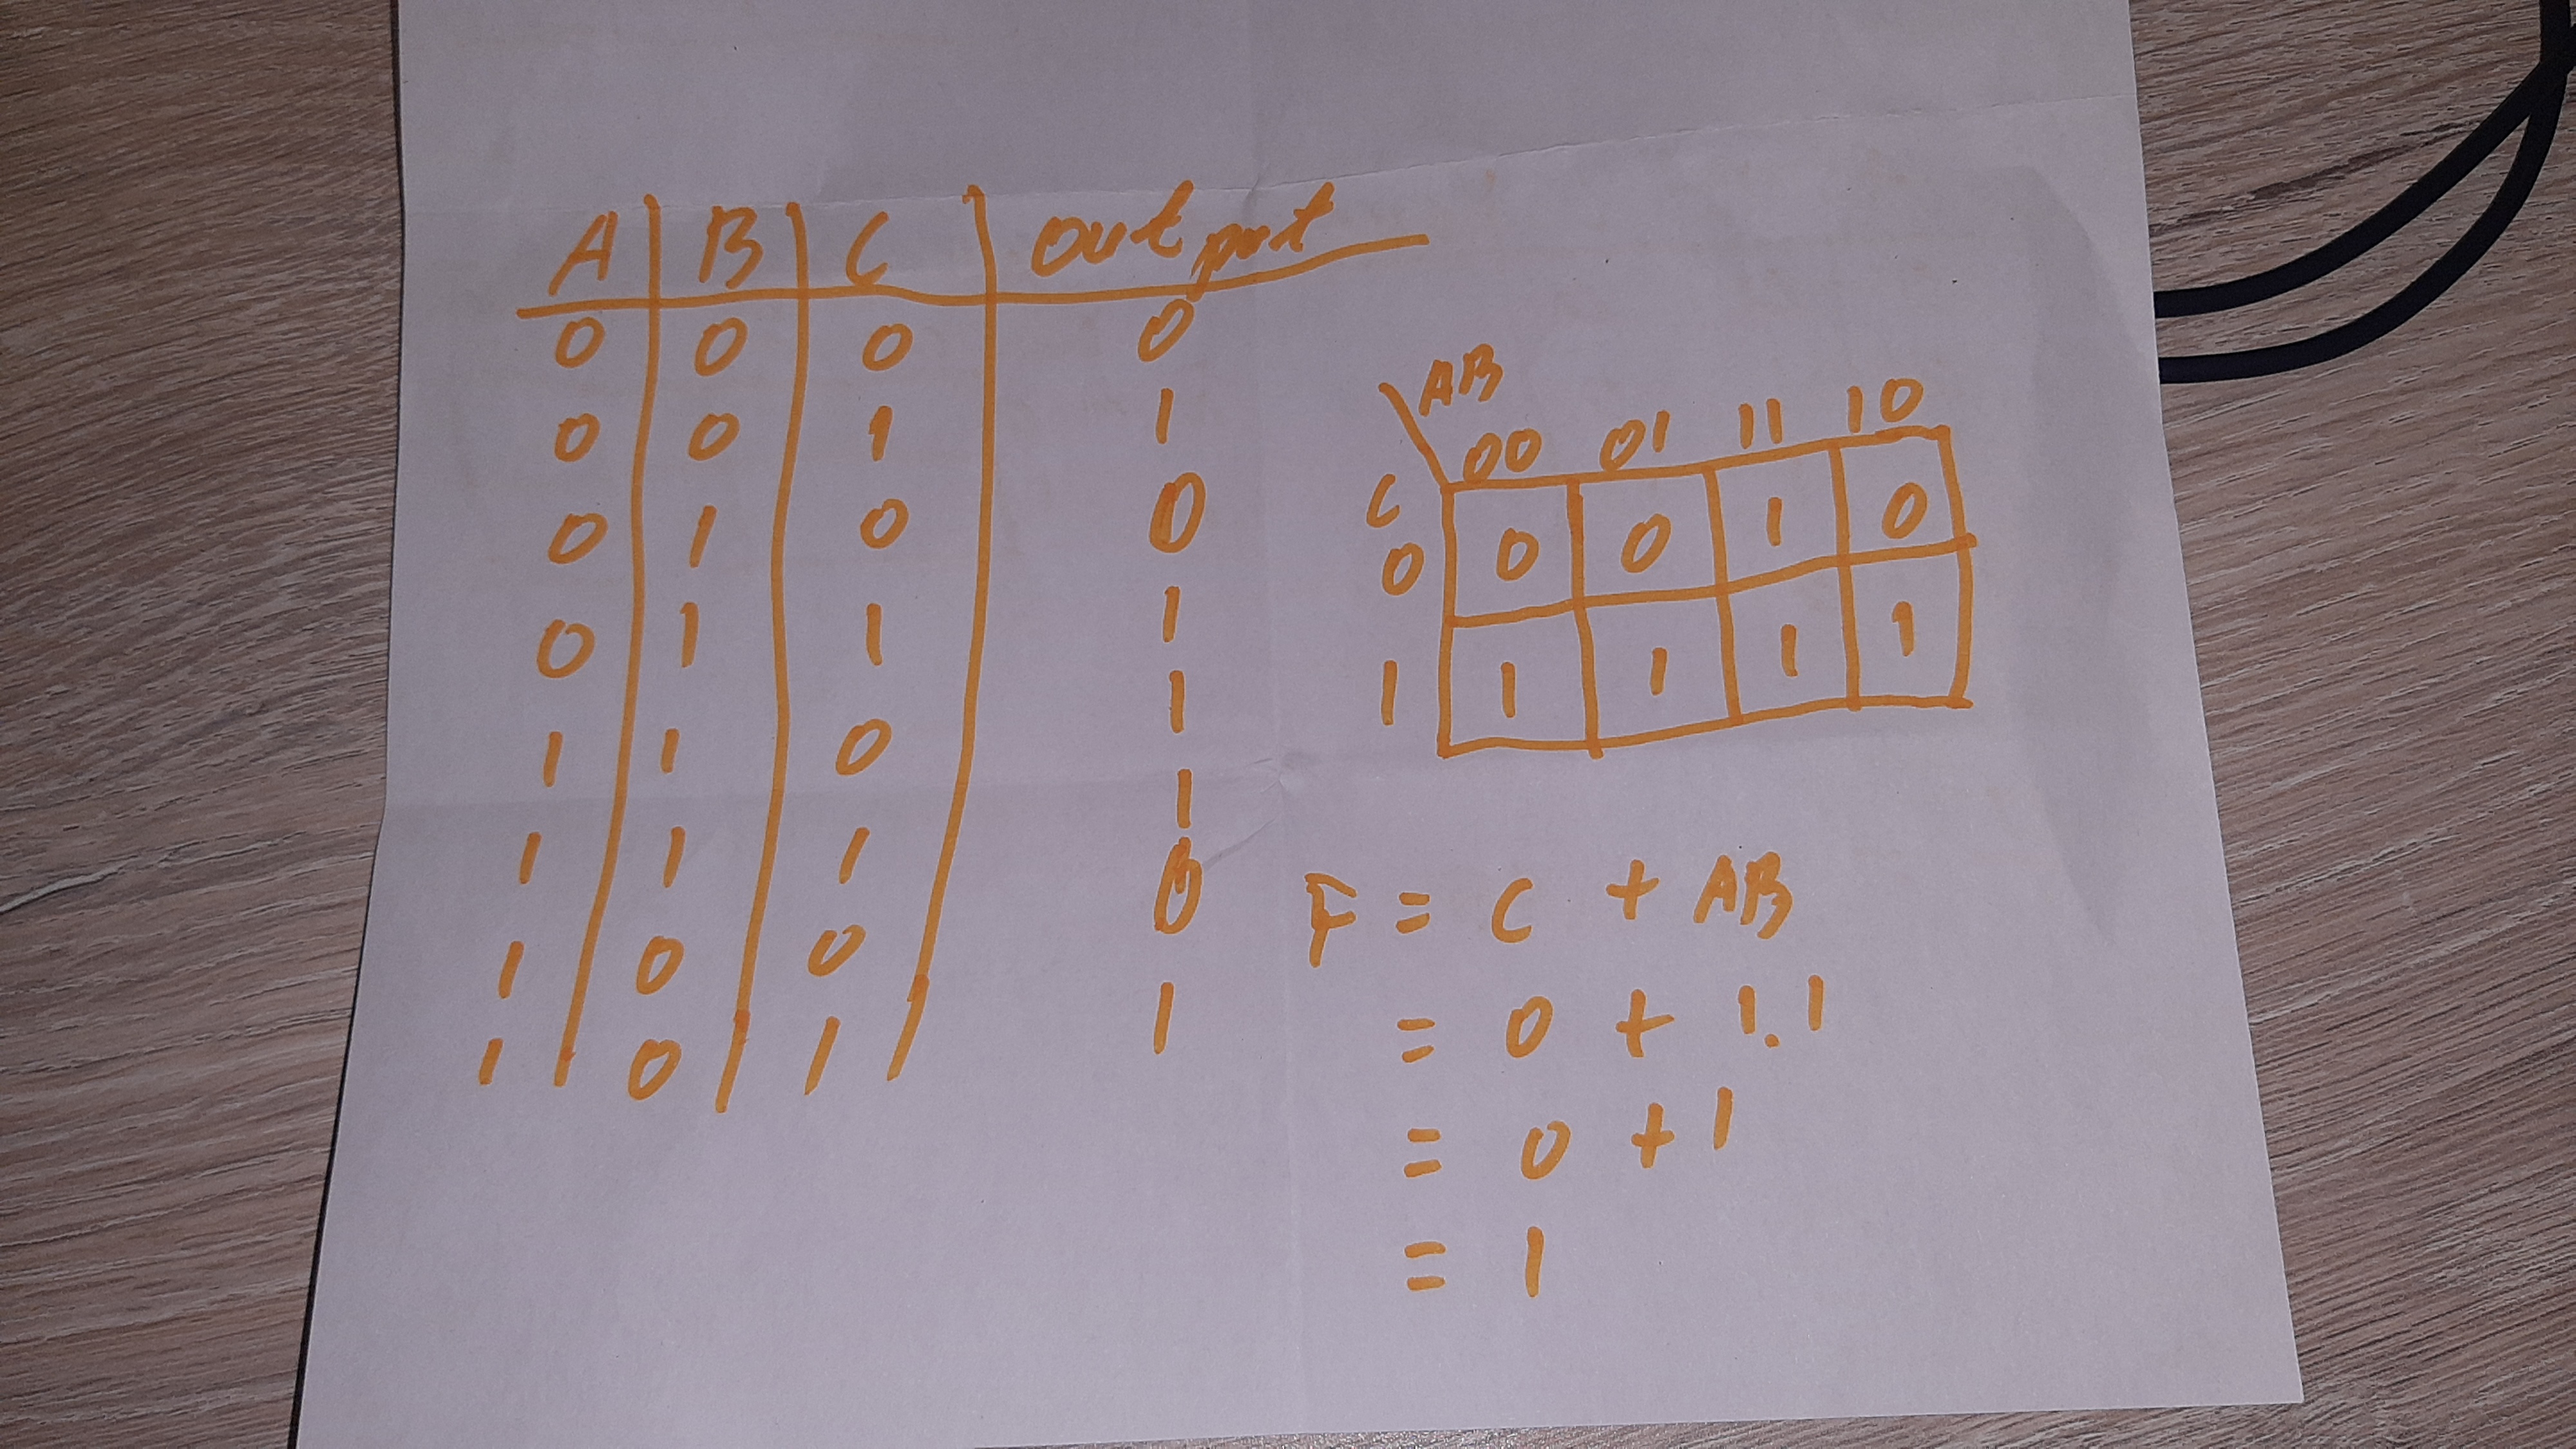 A B C output
0 0 0 0
0 0 1 1
0 1 0 0
0 1 1 1
1 1 0 1
1 1 1 1
1 0 0 0
1 0 1 1
AB
C 00 01 11 10
0 0 0 1 0
1 1 1 1 1
F = C + AB
= 0 + 1.1
= 0 + 1
= 1